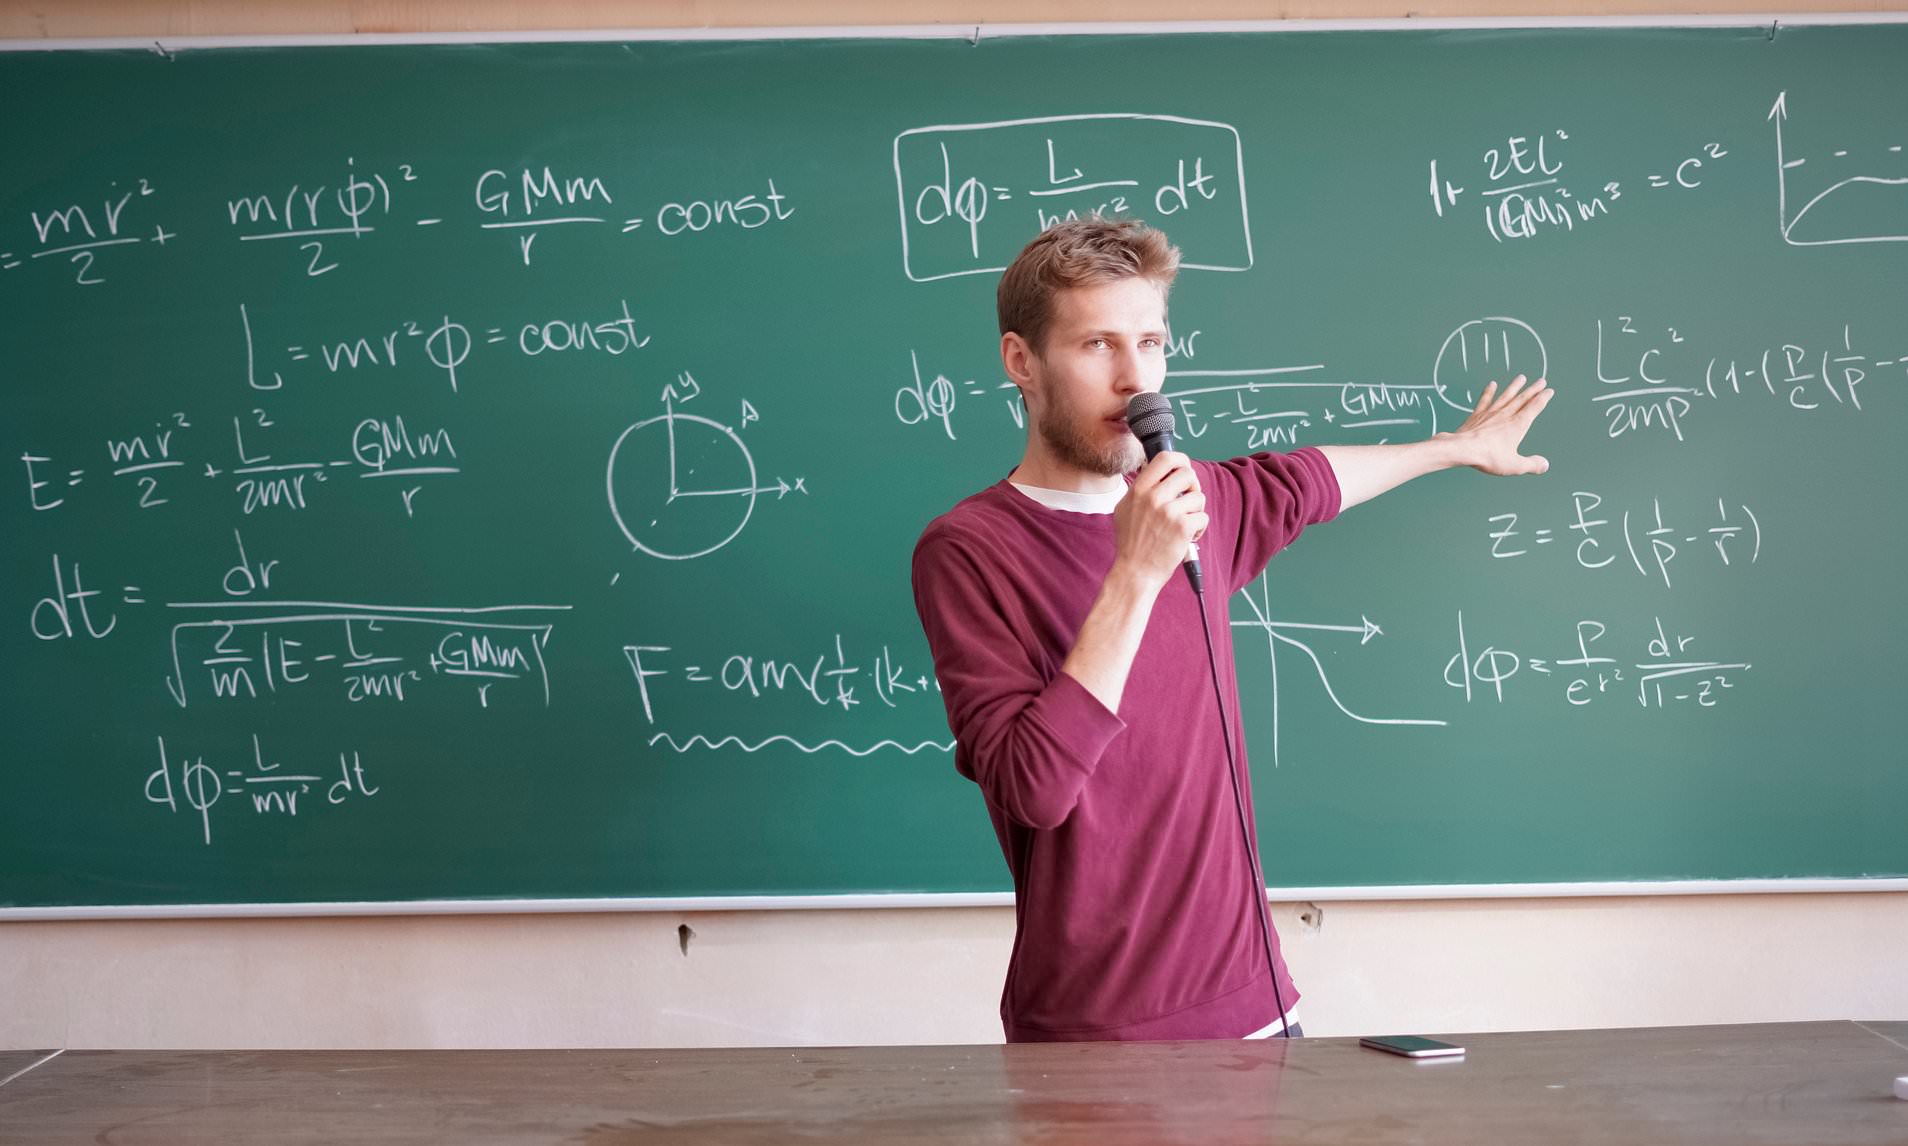 = mṙ²/2 + m(rφ̇)²/2 - GMm/r = const
L = mr²φ = const
E = mṙ²/2 + L²/2mr² - GMm/r
dt = dr/√(2/m(E - L²/2mr² + GMm/r))
dφ = L/mr² dt
y
A
x
F = am(1/k · (k +
dφ = L/mr² dt
dφ =
E - L²/2mr² + GMm
1 + 2EL²/(GM)²m³ = c²
L²c²/2mp² (1 - (P/c (1/p -
Z = P/c (1/p - 1/r)
dφ = P/er² dr/√1 - z²